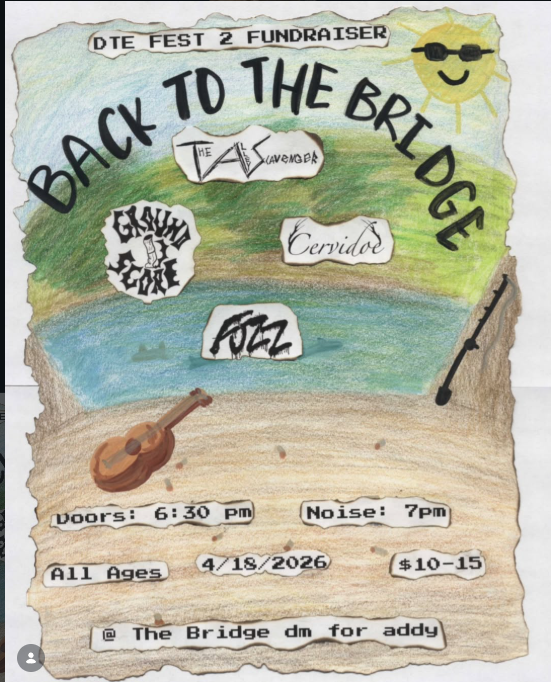 DTE FEST 2 FUNDRAISER
BACK TO THE BRIDGE
THE ALLEY SCAVENGER
GROUND SCORE
Cervidoe
FUZZ
Doors: 6:30 pm
Noise: 7pm
All Ages
4/18/2026
$10-15
@ The Bridge dm for addy